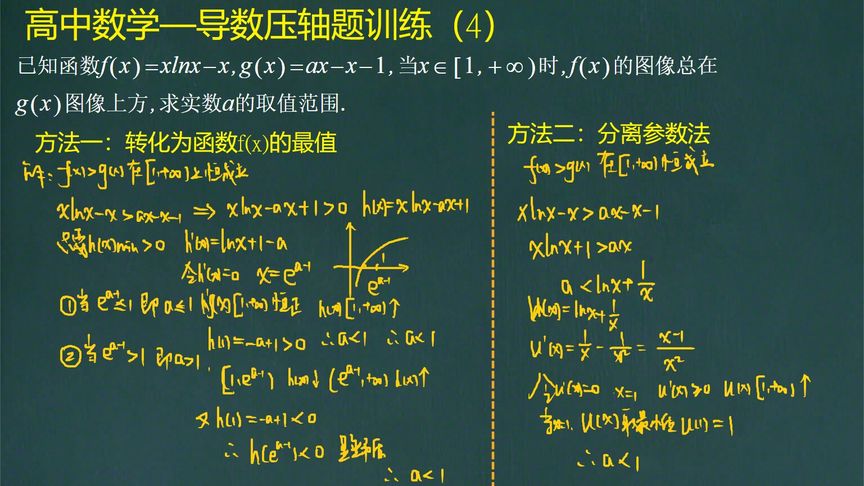 高中数学—导数压轴题训练（4）
已知函数f(x)=xlnx-x,g(x)=ax-x-1,当x∈[1,+∞)时,f(x)的图像总在
g(x)图像上方,求实数a的取值范围.
方法一：转化为函数f(x)的最值
解: f(x)>g(x) 在[1,+∞)上恒成立
xlnx-x>ax-x-1 ⇒ xlnx-ax+1>0 h(x)=xlnx-ax+1
h(x)min>0 h'(x)=lnx+1-a
令h'(x)=0 x=e^{a-1}
1
e^{a-1}
①当 e^{a-1}≤1 即 a≤1 [1,+∞) 恒正 h(x)[1,+∞)↑
h(1)=-a+1>0 ∴a<1 ∴a<1
②当 e^{a-1}>1 即 a>1
[1,e^{a-1}) h(x)↓ (e^{a-1},+∞) h(x)↑
又 h(1)=-a+1<0
∴ h(e^{a-1})<0
∴ a<1
方法二：分离参数法
f(x)>g(x) 在[1,+∞)恒成立
xlnx-x>ax-x-1
xlnx+1>ax
a<lnx+1/x
u(x)=lnx+1/x
u'(x)=1/x-1/x²=(x-1)/x²
令u'(x)=0 x=1 u'(x)≥0 u(x)[1,+∞)↑
当x=1, u(x)取最小值 u(1)=1
∴a<1